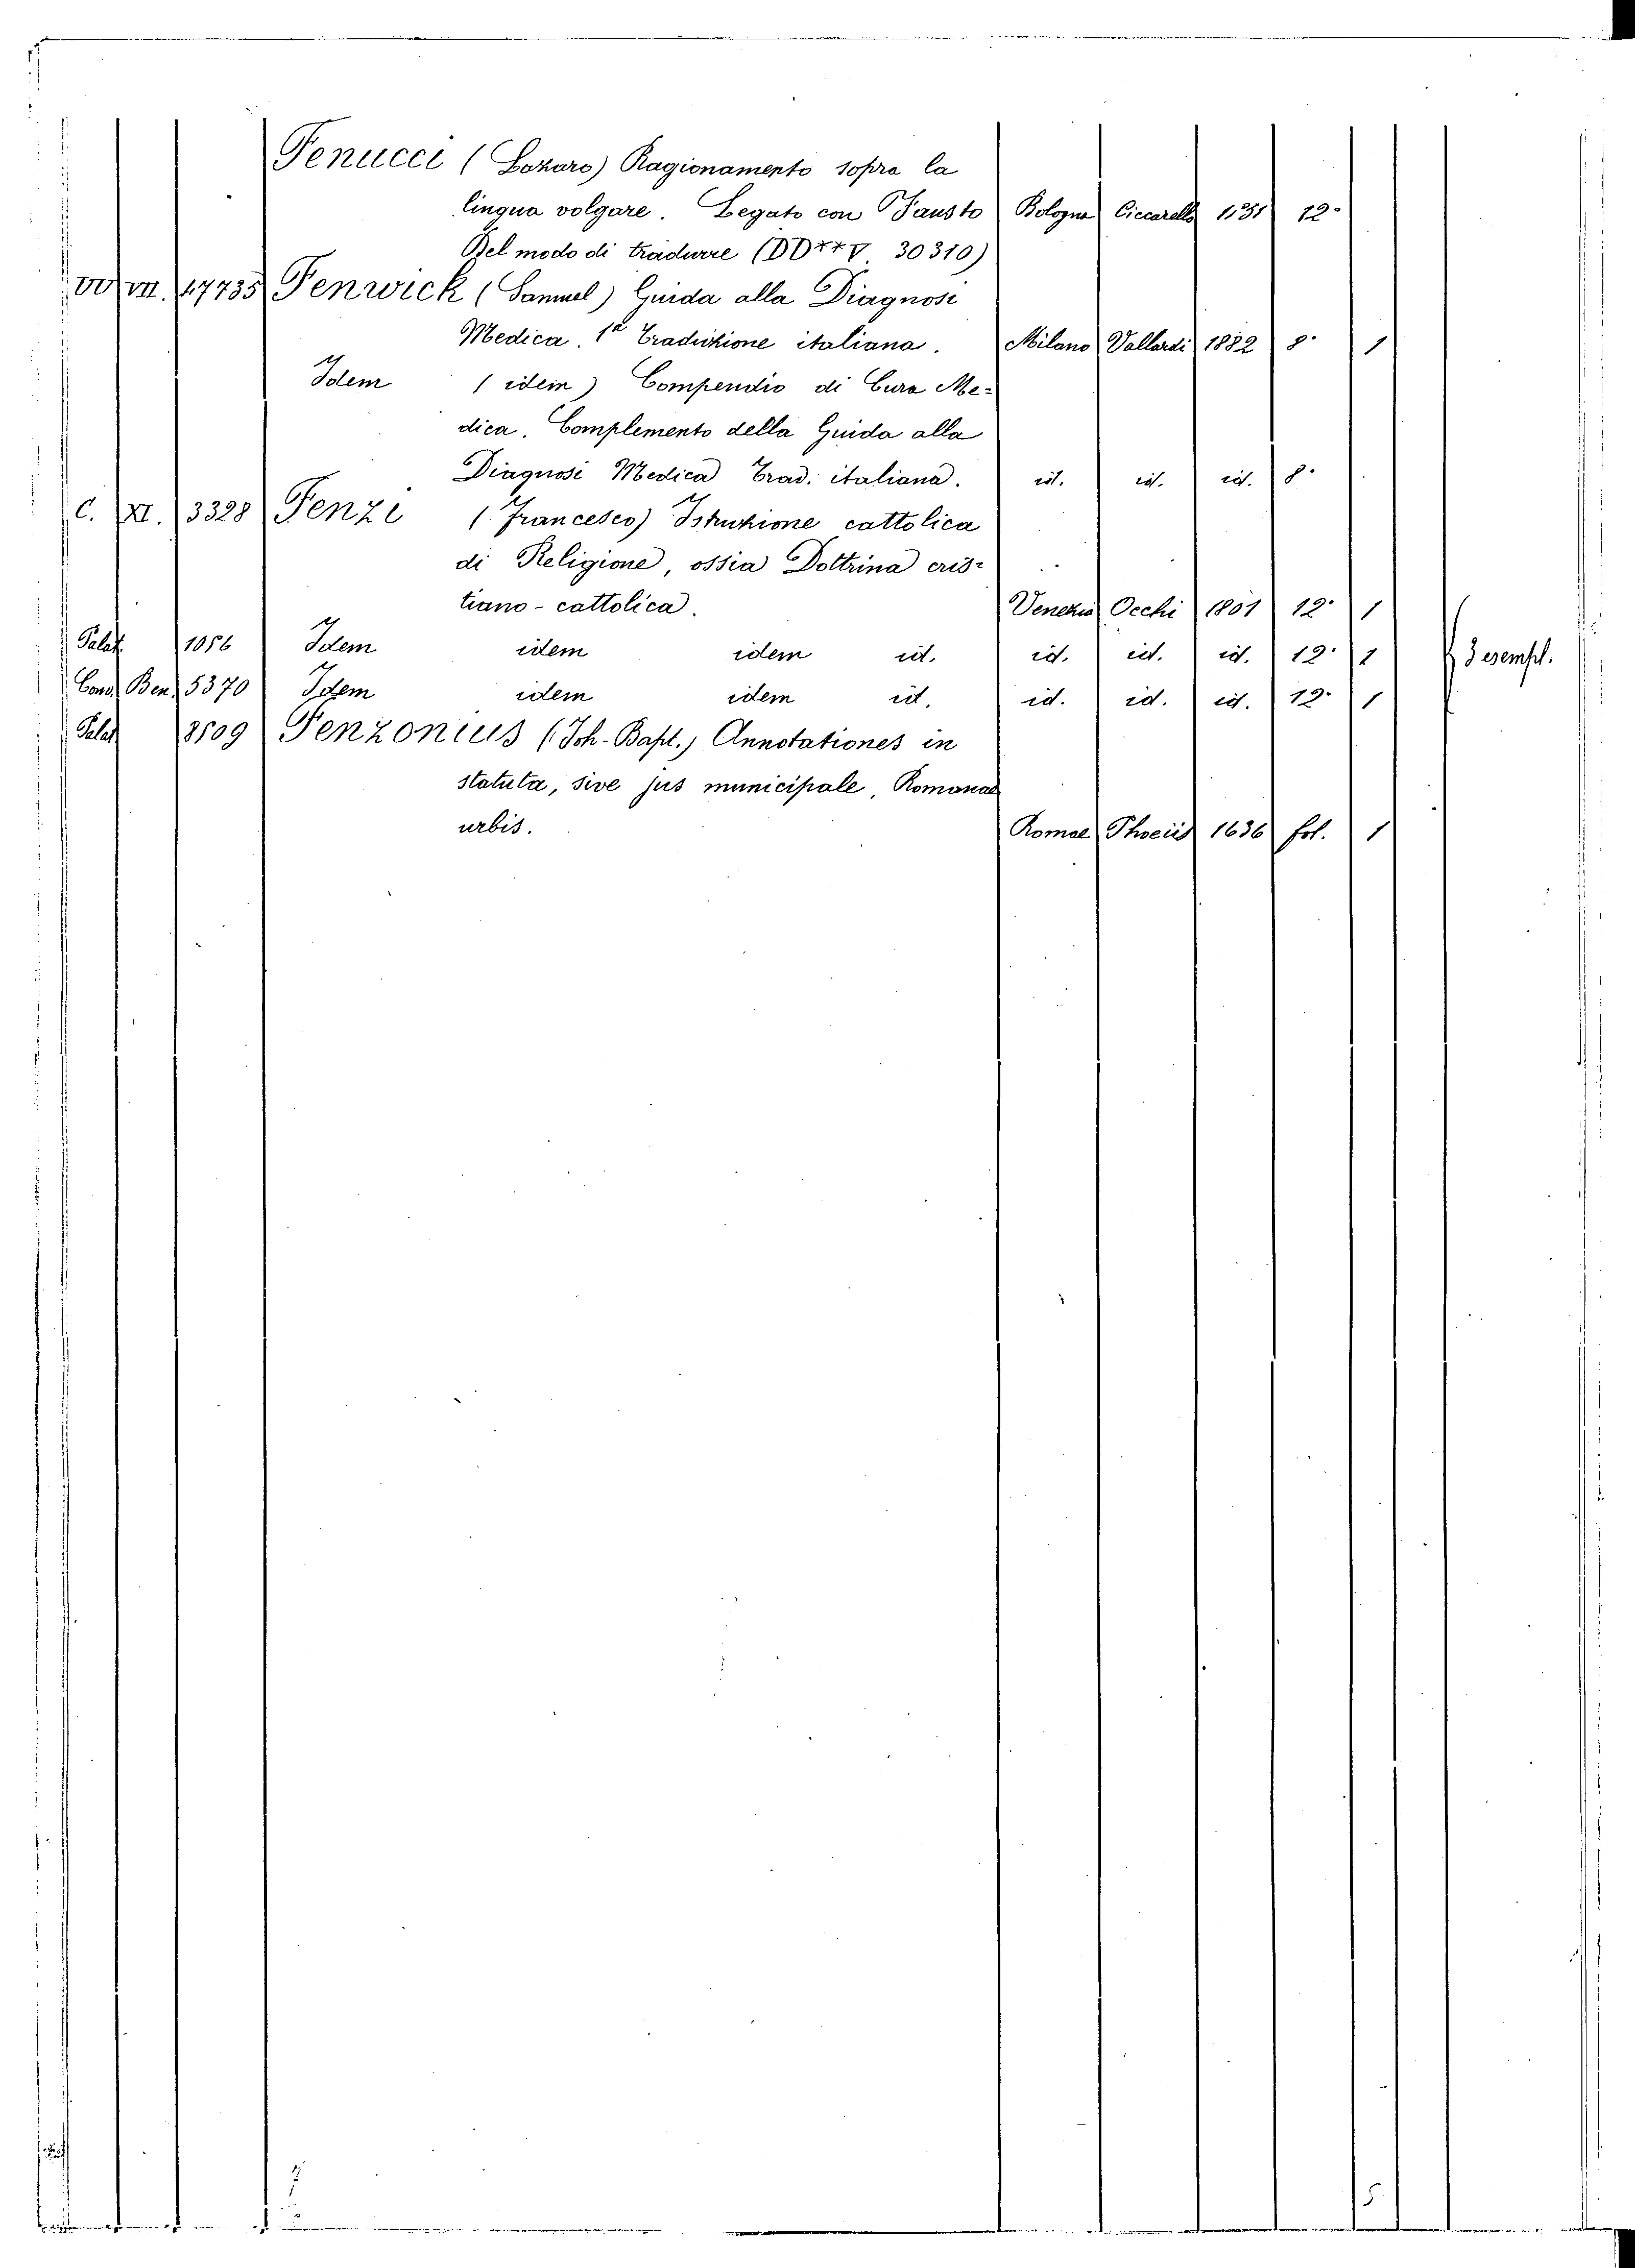 Fenucci (Lozaro) Ragionamento sopra la
lingua volgare. Legato con Fausto Bologna Ciccarello 1551 12°
Del modo di tradurre (DD**V 30310)
VV VII. 47735 Fenwick (Samuel) Guida alla Diagnosi
Medica. 1ª Traduzione italiana. Milano Vallardi 1882 8° 1
Idem (idem) Compendio di Cura Me=
dica. Complemento della Guida alla
Diagnosi Medica Trad. italiana. id. id. id. 8°
C. XI. 3328 Fenzi (Francesco) Istruzione cattolica
di Religione, ossia Dottrina cris=
tiano-cattolica. Venezia Occhi 1801 12° 1
Palat. 1056 Idem idem idem id. id. id. id. 12° 1 } 3 esempl.
Cons. Ben. 5370 Idem idem idem id. id. id. id. 12° 1
Palat 8509 Fenzonius (Joh-Bapt.) Annotationes in
statuta, sive jus municipale, Romanae
urbis. Romae 1636 fol. 1
7 5